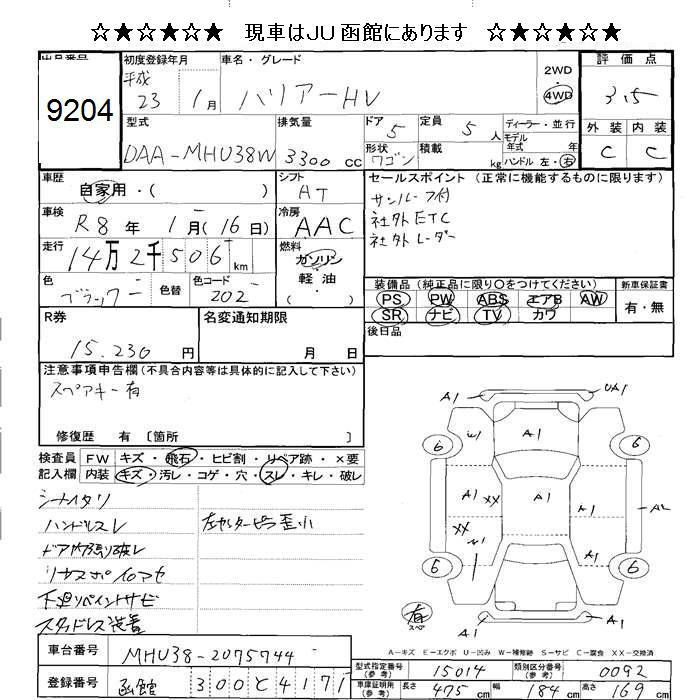 ☆★☆★☆★ 現車はJU函館にあります ☆★☆★☆★
出品番号 9204
初度登録年月 平成 23 1月
車名・グレード ハリアーHV
2WD 4WD
評価点 3.5
外装 内装
C C
型式 DAA-MHU38W
排気量 3300 cc
ドア 5 定員 5 人
形状 ワゴン 積載 kg
ディーラー・並行
モデル年式 年式
ハンドル 左・右
車歴 自家用・( )
シフト AT
車検 R8年 1月(16日)
冷房 AAC
走行 14万2千506 km
燃料 ガソリン 軽油 ・( )
色 ブラック 色替 色コード 202
セールスポイント (正常に機能するものに限ります)
サンルーフ付
社外ETC
社外レーダー
装備品(純正品に限り○をつけてください) 新車保証書
PS PW ABS エアB AW 有・無
SR ナビ TV カワ
後日品
R券 15.230円
名変通知期限 月 日
注意事項申告欄(不具合内容等は具体的に記入して下さい)
スペアキー有
修復歴 有 〔箇所 〕
検査員記入欄 FW キズ・飛石・ヒビ割・リペア跡・×要
内装 キズ・汚レ・コゲ・穴・スレ・キレ・破レ
シートイタリ
ハンドルスレ 左センターピラ歪小
ドア内張り破レ
下廻リペイントサビ
スタッドレス装着
A1 UA1
A1
6 6
A1 XX A1 A1 A2
XX
6 6
A1
A1 A1
有 スペア
A-キズ E-エクボ U-凹み W-補修跡 S-サビ C-腐食 XX-交換済
車台番号 MHU38-2075744
登録番号 函館 300 と 4171
型式指定番号(参考) 15014 類別区分番号(参考) 0092
車庫証明用(参考) 長さ 475cm 幅 184cm 高さ 169cm